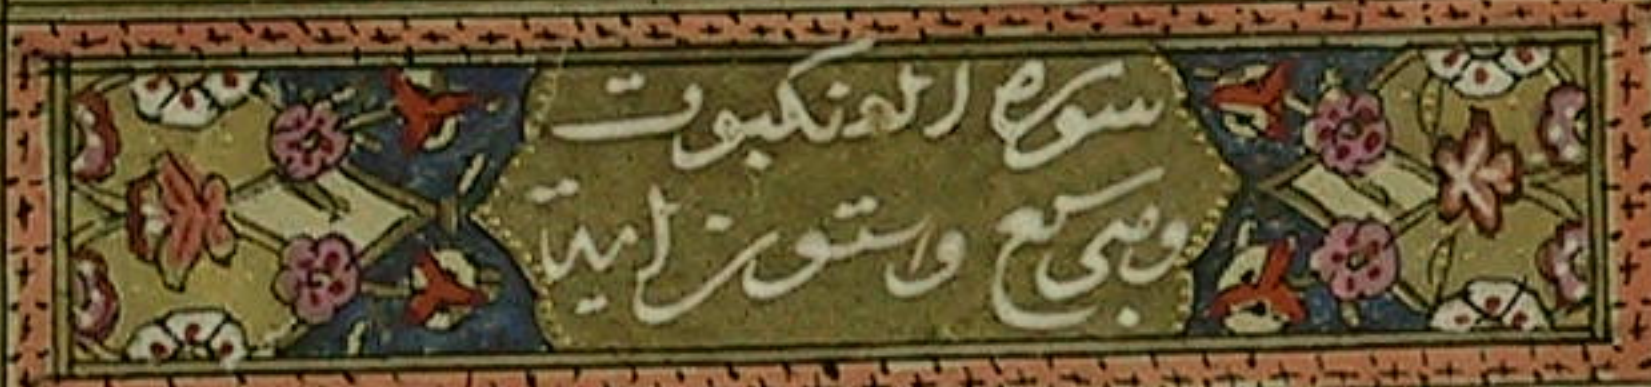 سورة العنكبوت
وهي تسع وستون اية